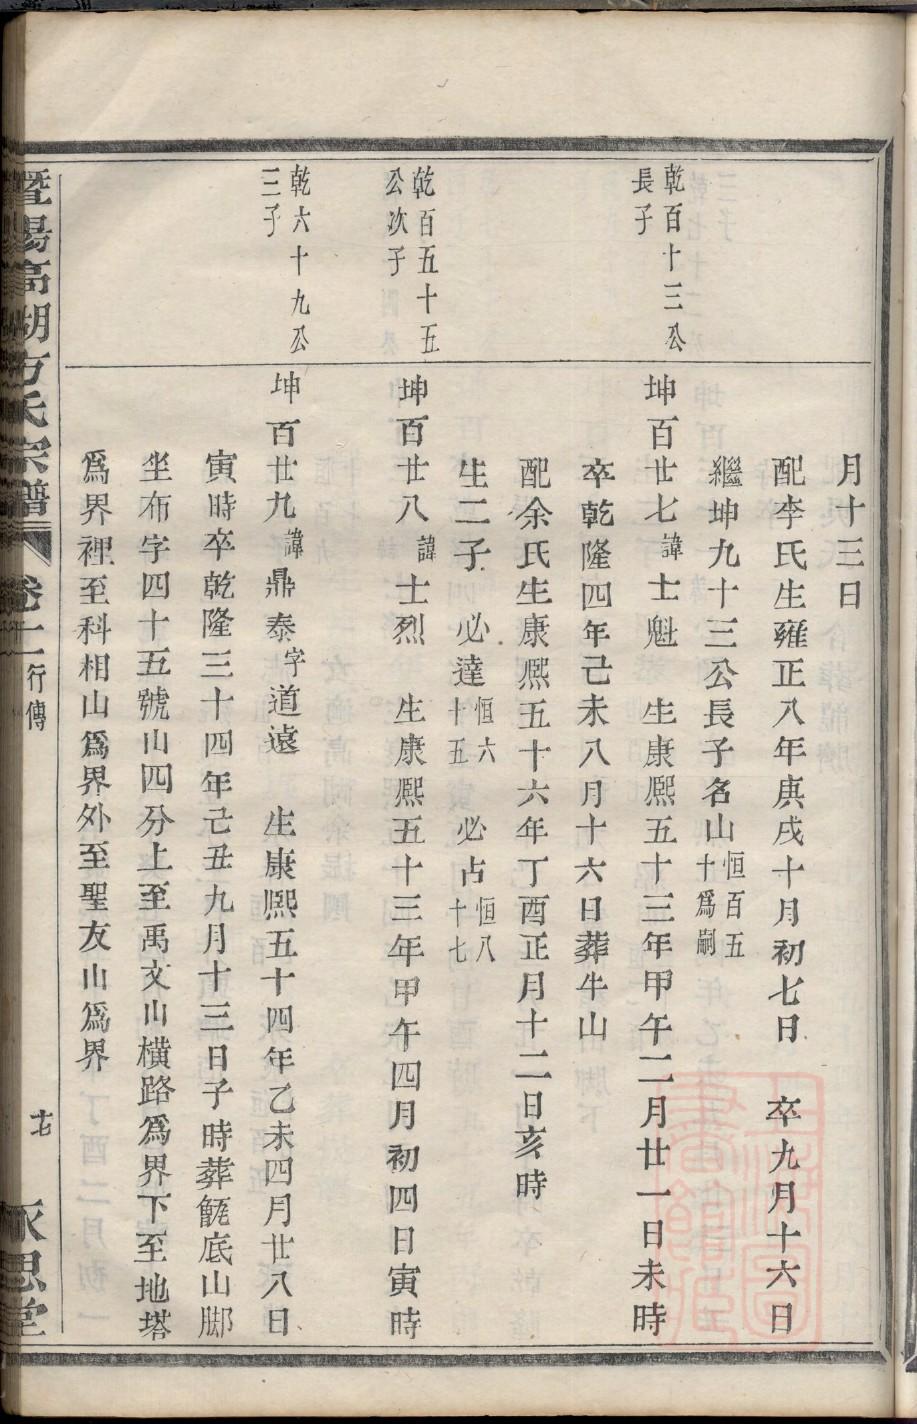 月十三日
配李氏生雍正八年庚戌十月初七日　卒九月十六日
繼坤九十三公長子名山恒百五十爲嗣
乾百十三公長子
坤百廿七諱士魁　生康熈五十三年甲午二月廿一日未時
卒乾隆四年己未八月十六日葬牛山
配余氏生康熈五十六年丁酉正月十二日亥時
生二子　必達恒六十五　必占恒八十七
乾百五十五公次子
坤百廿八諱士烈　生康熈五十三年甲午四月初四日寅時
乾六十九公三子
坤百廿九諱鼎泰字道遠　生康熈五十四年乙未四月廿八日
寅時卒乾隆三十四年己丑九月十三日子時葬甑底山脚
坐布字四十五號山四分上至禹文山橫路爲界下至地塔
爲界裡至科相山爲界外至聖友山爲界
暨陽高湖方氏宗譜　卷十二　行傳　十七　永思堂